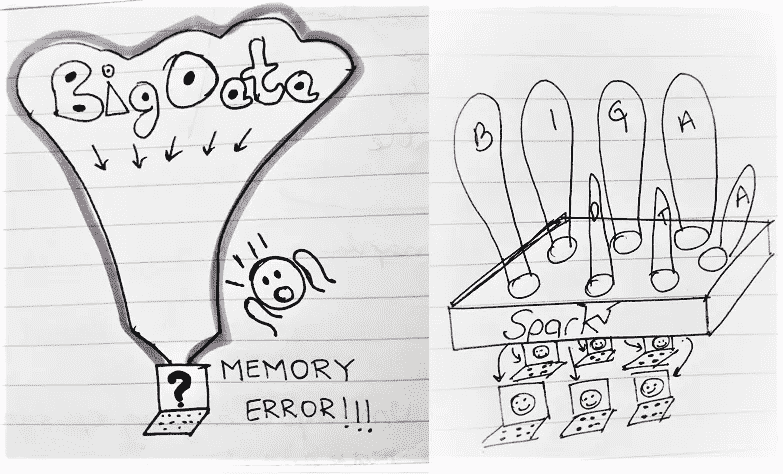 Big Data
?
MEMORY
ERROR!!!
B I G A
D T A
Spark